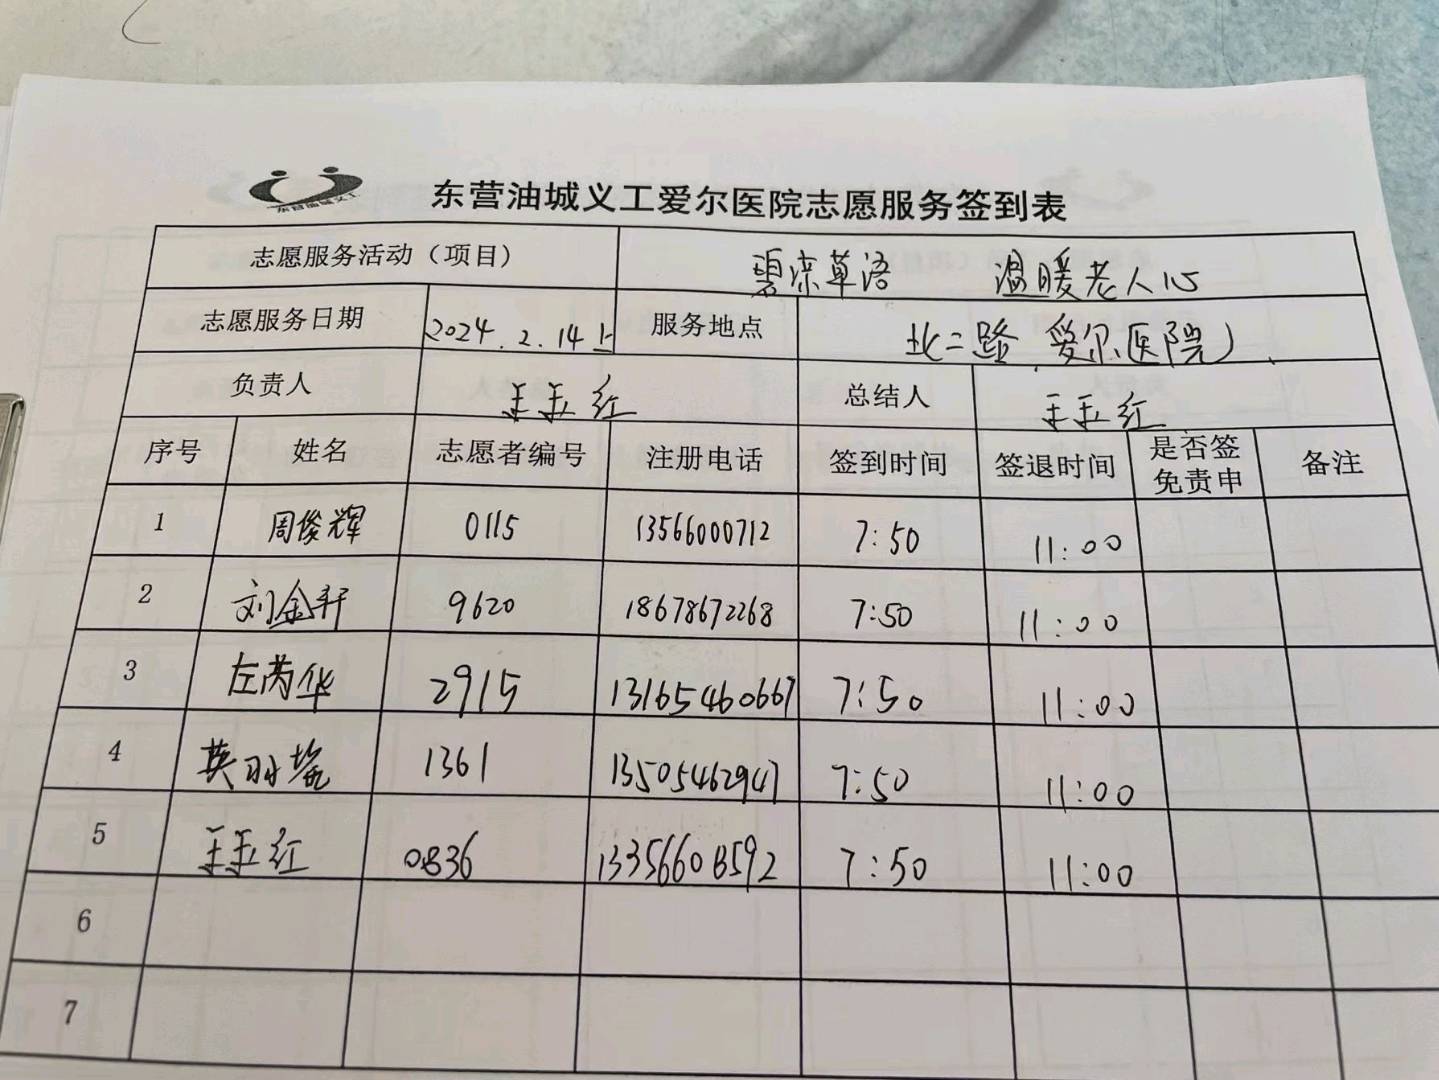 东营油城义工
东营油城义工爱尔医院志愿服务签到表
志愿服务活动（项目） 碧凉草语 温暖老人心
志愿服务日期 2024.2.14上 服务地点 北二路(爱尔医院)
负责人 王玉红 总结人 王玉红
序号 姓名 志愿者编号 注册电话 签到时间 签退时间 是否签免责申 备注
1 周俊辉 0115 13566000712 7:50 11:00
2 刘金轩 9620 18678672268 7:50 11:00
3 左芮华 2915 13165460667 7:50 11:00
4 1361 13505462947 7:50 11:00
5 王玉红 0836 7:50 11:00
6
7